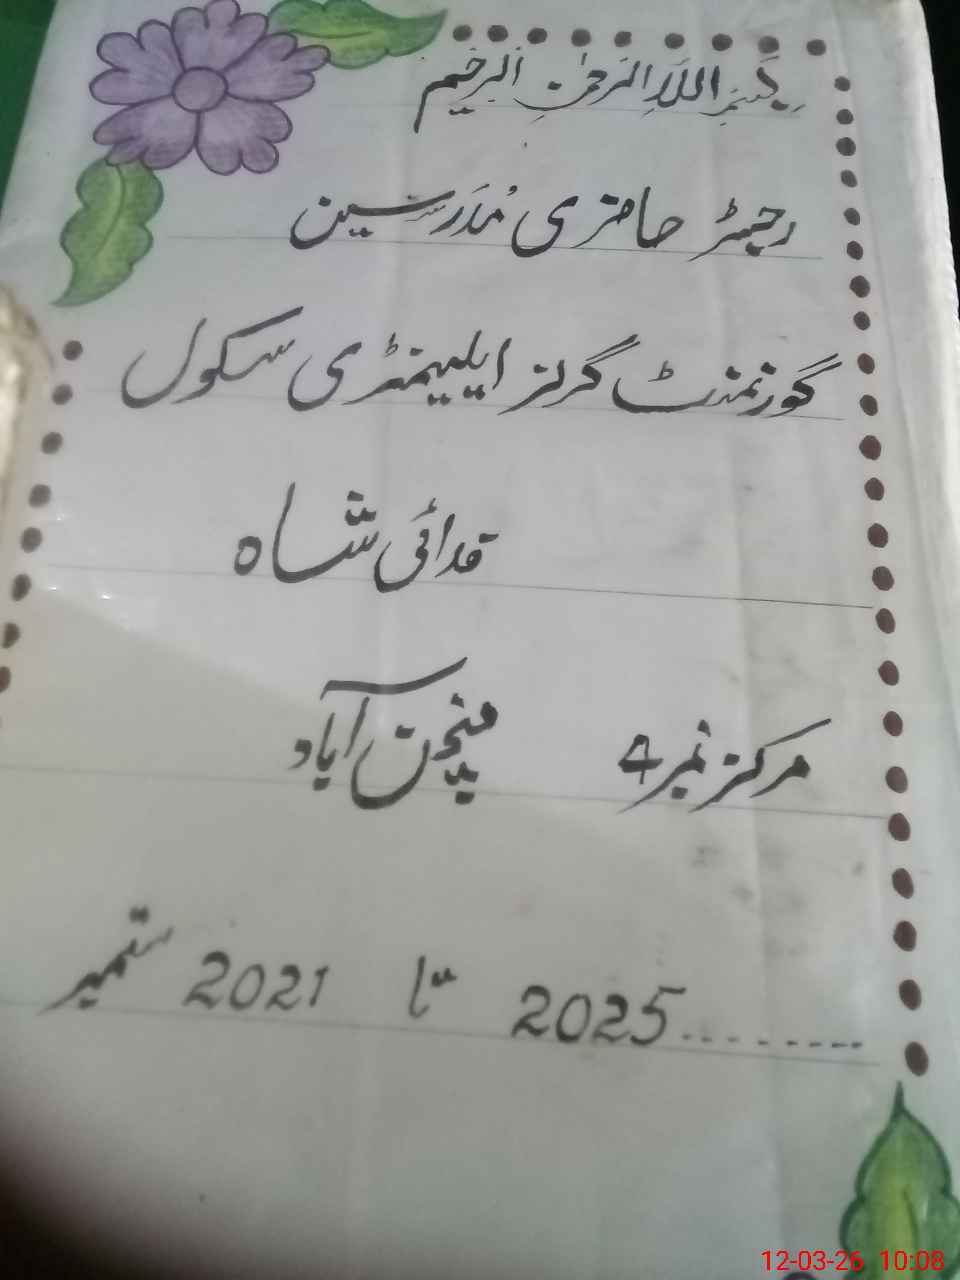 بِسْمِ اللہِ الرَّحْمٰنِ الرَّحِیْم
رجسٹر حاضری مُدَرسین
گورنمنٹ گرلز ایلیمنٹری سکول
فدائی شاہ
مرکز نمبر 4 منچن آباد
ستمبر 2021 تا 2025........
12-03-26 10:08